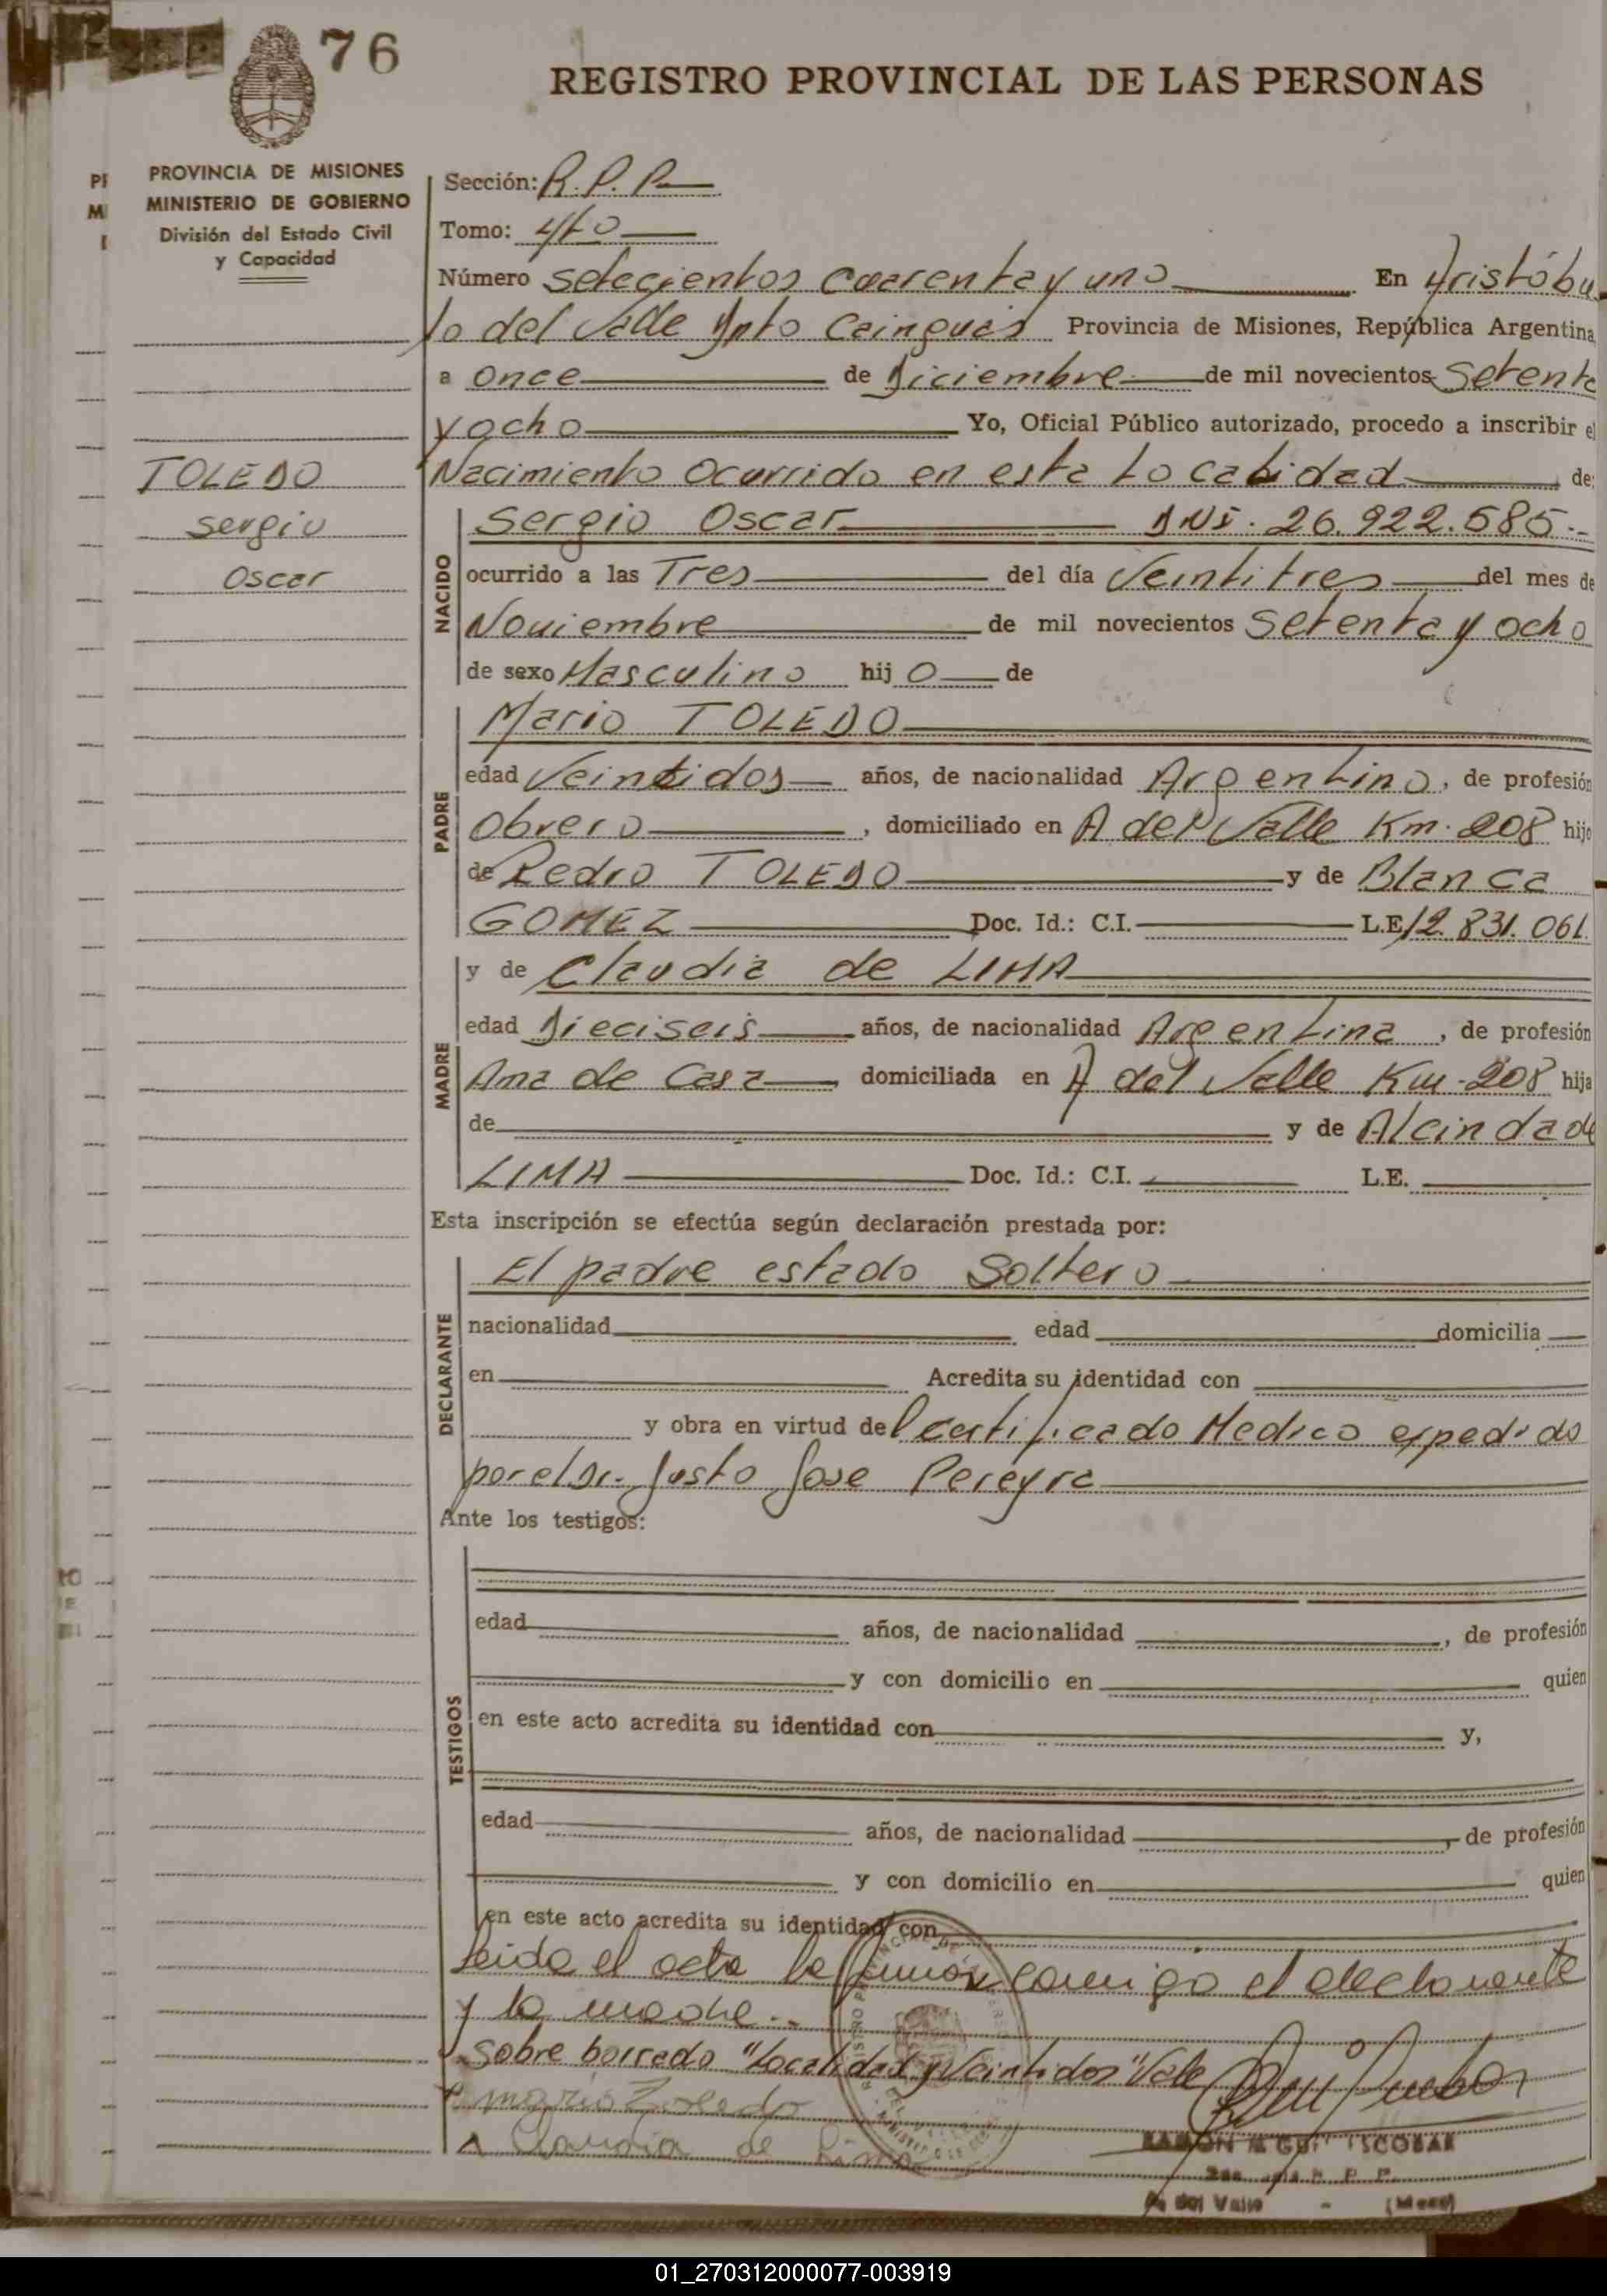 76
REGISTRO PROVINCIAL DE LAS PERSONAS
PROVINCIA DE MISIONES
MINISTERIO DE GOBIERNO
División del Estado Civil
y Capacidad
Sección: R.P.P.
Tomo: 4to
Número setecientos cuarenta y uno En Aristóbu
lo del Valle Dpto Cainguás Provincia de Misiones, República Argentina,
a Once de Diciembre de mil novecientos Setenta
y ocho Yo, Oficial Público autorizado, procedo a inscribir el
Nacimiento Ocurrido en esta Localidad de:
TOLEDO
Sergio
Oscar
NACIDO
Sergio Oscar DNI. 26.922.585.-
ocurrido a las Tres del día Veintitres del mes de
Noviembre de mil novecientos Setenta y ocho
de sexo Masculino hij o de
PADRE
Mario TOLEDO
edad Veintidos años, de nacionalidad Argentino, de profesión
Obrero, domiciliado en A del Valle Km. 208 hijo
de Pedro TOLEDO y de Blanca
GOMEZ Doc. Id.: C.I. L.E. 12.831.061.
MADRE
y de Claudia de LIMA
edad Dieciseis años, de nacionalidad Argentina, de profesión
Ama de Casa domiciliada en A del Valle Km. 208 hija
de y de Alcinda de
LIMA Doc. Id.: C.I. L.E.
Esta inscripción se efectúa según declaración prestada por:
DECLARANTE
El padre estado Soltero
nacionalidad edad domicilia
en Acredita su identidad con
y obra en virtud del certificado Medico expedido
por el Dr. Justo Jose Pereyra
Ante los testigos:
TESTIGOS
edad años, de nacionalidad , de profesión
y con domicilio en quien
en este acto acredita su identidad con y,
edad años, de nacionalidad , de profesión
y con domicilio en quien
en este acto acredita su identidad con
Leida el acta la firman conmigo el declarante
y la madre.-
Sobre borrado "Localidad y Veintidos" Vale
Mario Toledo
Claudia de Lima
RAMON M ESCOBAR
R. P. P.
A. del Valle - (Mnes)
01_270312000077-003919